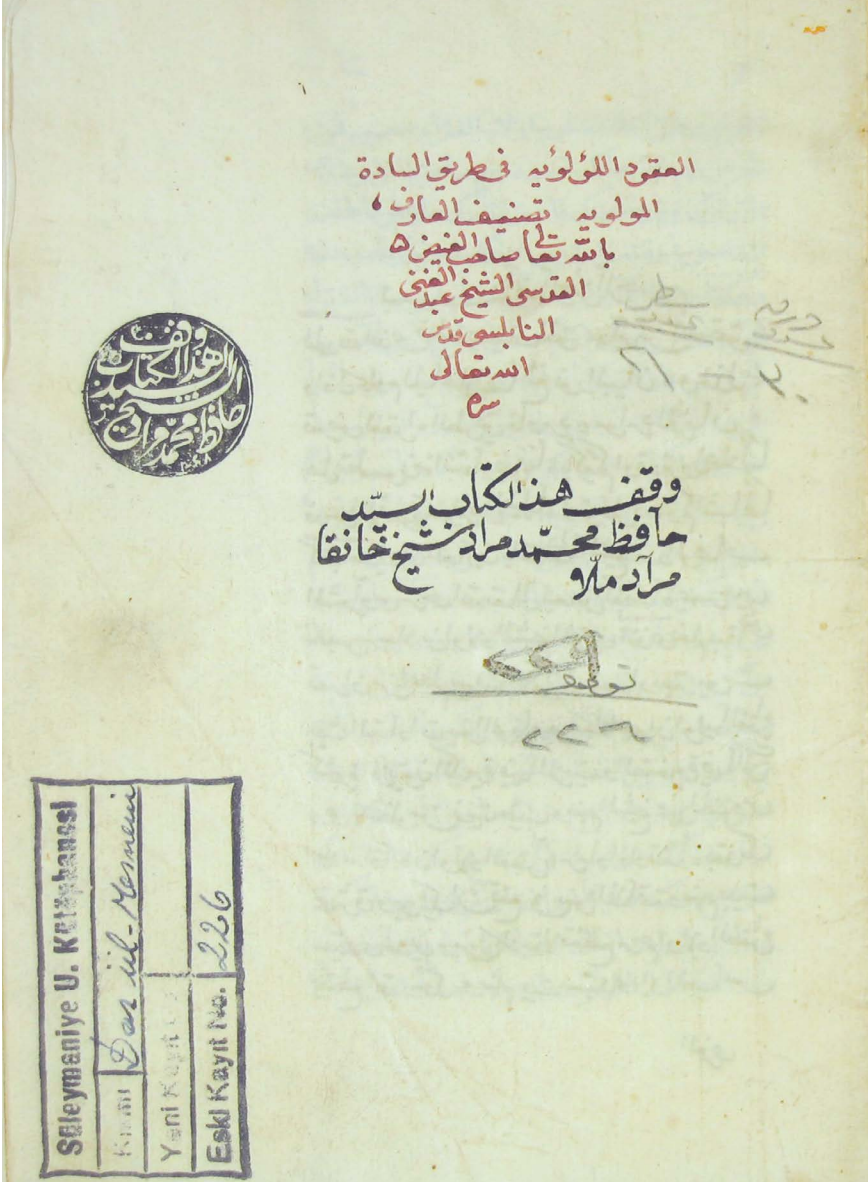 العقود اللؤلؤيه فى طريق السادة
المولويه تصنيف العارف
بالله تعالى صاحب الفيض
القدسى الشيخ عبد الغنى
النابلسى قدس
الله تعالى
سره
وقف هذا الكتاب
السيد
الشيخ
حافظ محمد مراد
وقف هذ الكتاب السيّد
حآفظ محمّد مراد شيخ خانقا
مرآد ملّا
نومرو
٢٢٦
Süleymaniye U. Kütüphanesi
Kısmı Dar ül-Mesnevi
Yeni Kayıt
Eski Kayıt No. 226